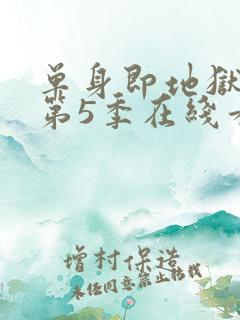 单身即地獄
第5季在线
增村保造
未经同意禁止转载